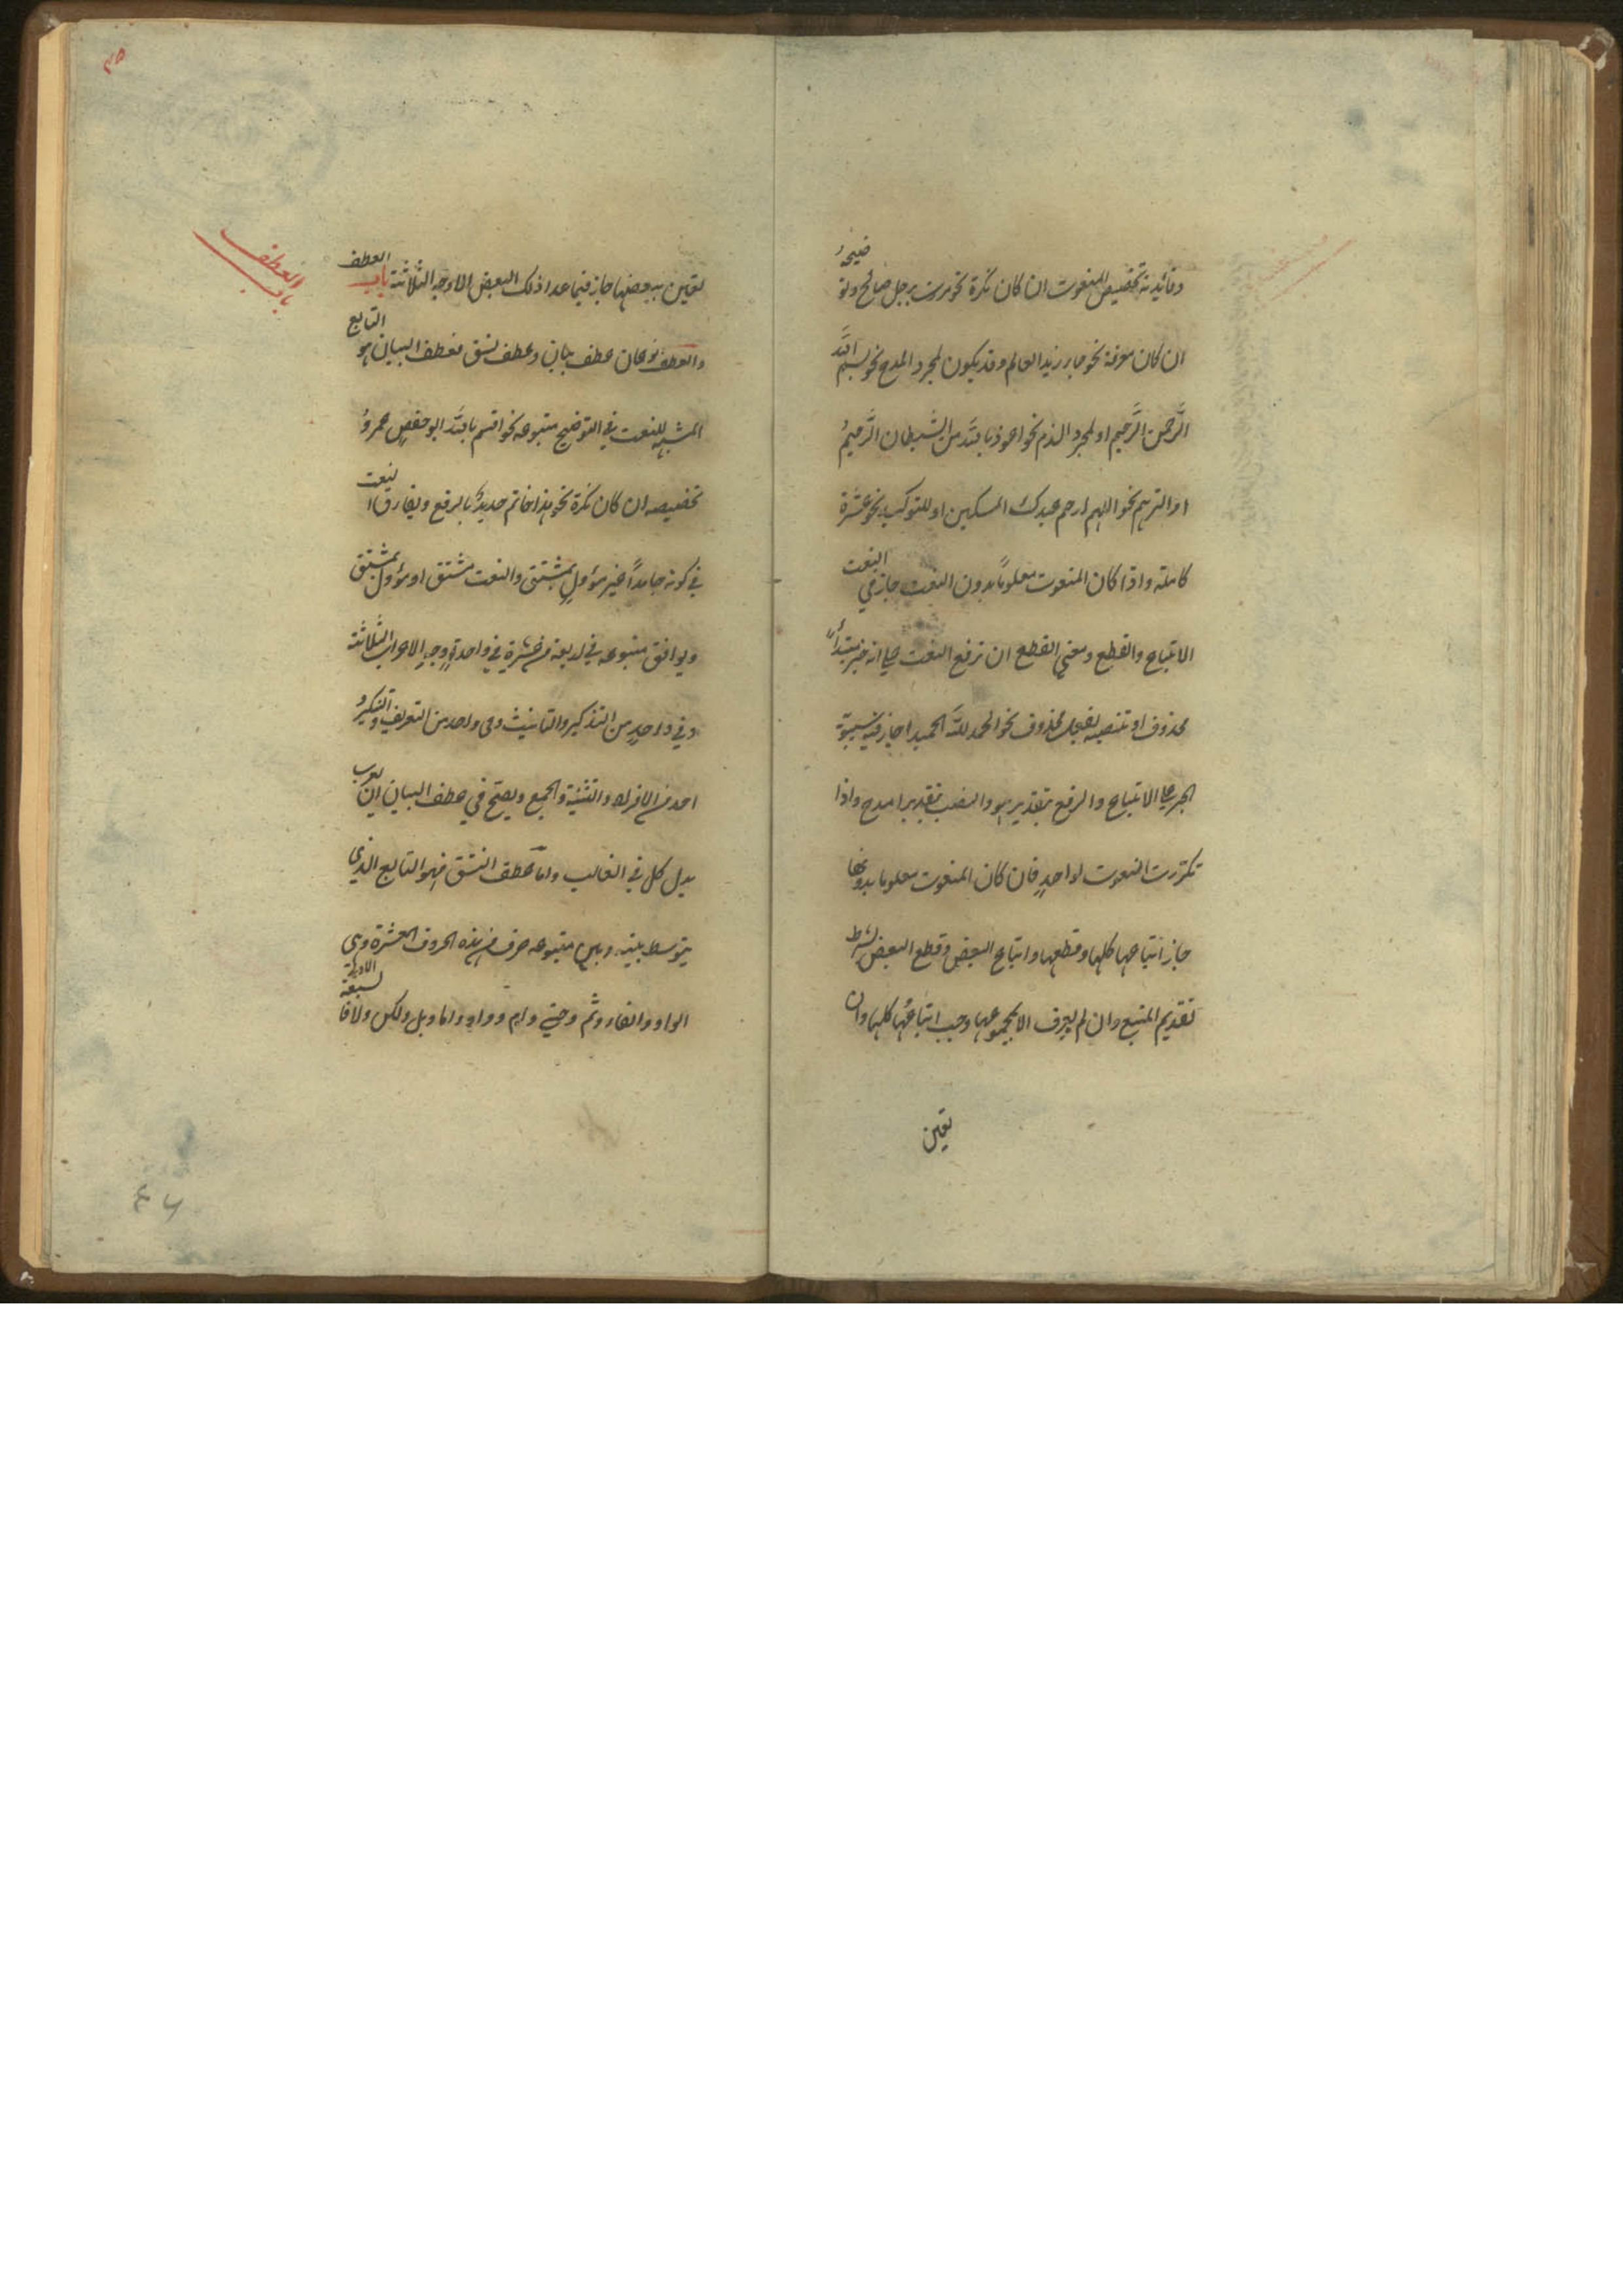 وفائدته تخصيص المنعوت ان كان نكرة نحو مررت برجل صالح وتوضيحه
ان كان معرفة نحو جاء زيد العالم وقد يكون لمجرد المدح نحو بسم الله
الرَّحمن الرَّحيم او لمجرد الذم نحو اعوذ بالله من الشيطان الرَّجيم
او الترحم نحو اللهم ارحم عبدك المسكين او للتوكيد نحو عشرة
كاملة واذا كان المنعوت معلومًا بدون النعت جاز في النعت
الاتباع والقطع ومعنى القطع ان ترفع النعت على انه خبر مبتدأ
محذوف او تنصبه بفعل محذوف نحو الحمد لله الحميد اجاز فيه سيبويه
الجر على الاتباع والرفع بتقدير هو والنصب بتقدير امدح واذا
تكررت النعوت لواحدٍ فان كان المنعوت معلوما بدونها
جاز اتباعها كلها وقطعها واتباع البعض وقطع البعض بشرط
تقديم المتبع وان لم يعرف الا بمجموعها وجب اتباعُها كلها وان
تعين
٤٥
باب العطف
تعين ببعضها جاز فيما عدا ذلك البعض الاوجه الثلاثة باب العطف
والعطف نوعان عطف بيان وعطف نسق فعطف البيان هو التابع
المشبه للنعت في التوضيح متبوعه نحو اقسم بالله ابو حفص عمرُ
تخصيصه ان كان نكرة نحو هذا خاتم حديدٌ بالرفع ويفارق النعت
في كونه جامدًا غير مؤولٍ بمشتق والنعت مشتق او مؤول بمشتق
ويوافق متبوعه في اربعة من عشرة في واحدةٍ وجه الاعراب الثلاثة
وفي واحدٍ من التذكير والتانيث وفي واحد من التعريف والتنكير و
احد من الافراد والتثنية والجمع ويصح في عطف البيان ان يعرب
بدل كل في الغالب واما عطف النسق فهو التابع الذي
يتوسط بينه وبين متبوعه حرف من هذه الحروف العشرة وهي
الواو والفاء وثم وحتى وام واو واما وبل ولكن ولا فالسبعة الاولى
٤٦